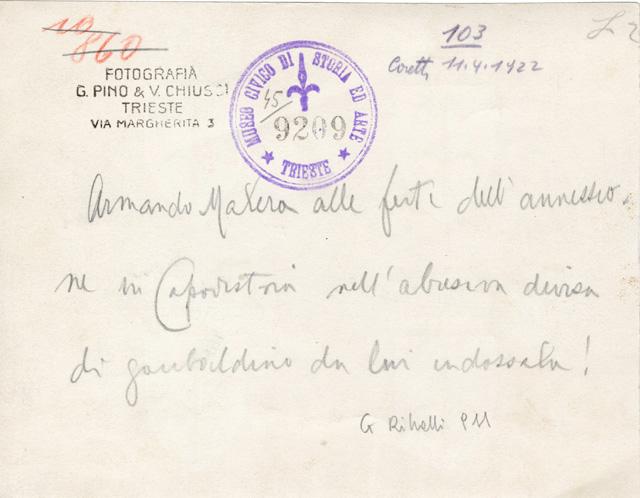 10
860
103
L 2
Coretti 11.4.1922
FOTOGRAFIA
G. PINO & V. CHIUSSI
TRIESTE
VIA MARGHERITA 3
MUSEO CIVICO DI STORIA ED ARTE
TRIESTE
45
9209
Armando Matera alle feste dell'annessio-
ne in Capodistria nell'abusiva divisa
di garibaldino da lui indossata!
G